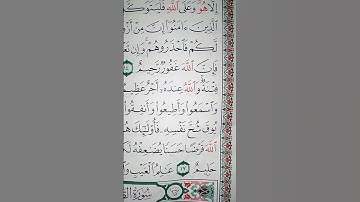 إِلَّا هُوَ وَعَلَى ٱللَّهِ فَلْيَتَوَكَّ
ٱلَّذِينَ ءَامَنُوٓا۟ إِنَّ مِنْ أَزْ
لَّكُمْ فَٱحْذَرُوهُمْ وَإِن تَعْ
فَإِنَّ ٱللَّهَ غَفُورٌ رَّحِيمٌ
فِتْنَةٌ وَٱللَّهُ عِندَهُۥٓ أَجْرٌ عَظِيمٌ
وَٱسْمَعُوا۟ وَأَطِيعُوا۟ وَأَنفِقُوا۟
يُوقَ شُحَّ نَفْسِهِۦ فَأُو۟لَـٰٓئِكَ هُ
ٱللَّهَ قَرْضًا حَسَنًا يُضَـٰعِفْهُ لَكُ
حَلِيمٌ ١٧ عَـٰلِمُ ٱلْغَيْبِ وَٱ
سُورَةُ ٱل